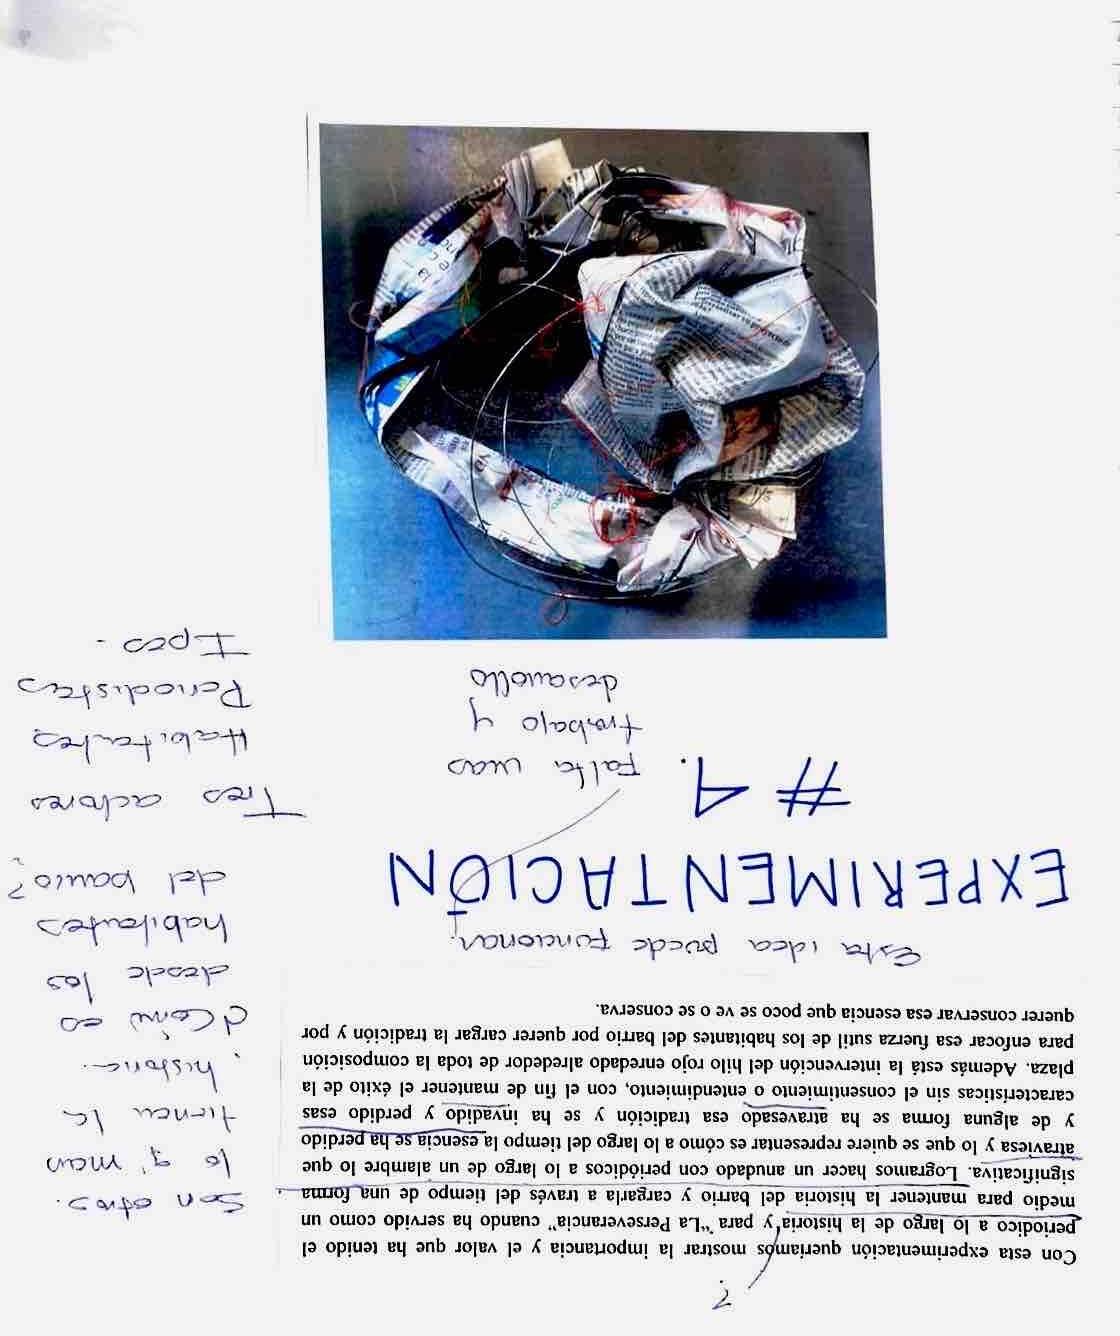 ?
Con esta experimentación queriamos mostrar la importancia y el valor que ha tenido el
periódico a lo largo de la historia y para "La Perseverancia" cuando ha servido como un
medio para mantener la historia del barrio y cargarla a través del tiempo de una forma
significativa. Logramos hacer un anudado con periódicos a lo largo de un alambre lo que
atraviesa y lo que se quiere representar es cómo a lo largo del tiempo la esencia se ha perdido
y de alguna forma se ha atravesado esa tradición y se ha invadido y perdido esas
características sin el consentimiento o entendimiento, con el fin de mantener el éxito de la
plaza. Además está la intervención del hilo rojo enredado alrededor de toda la composición
para enfocar esa fuerza sutil de los habitantes del barrio por querer cargar la tradición y por
querer conservar esa esencia que poco se ve o se conserva.
Son otros.
lo q' man
tienen la
historia.
¿Como es
desde los
habitantes
del barrio?
Esta idea puede funcionar.
EXPERIMENTACIÓN
#1.
Falta mas
trabajo y
desarrollo
Tres actores
Habitantes
Periodistas
Ipes.